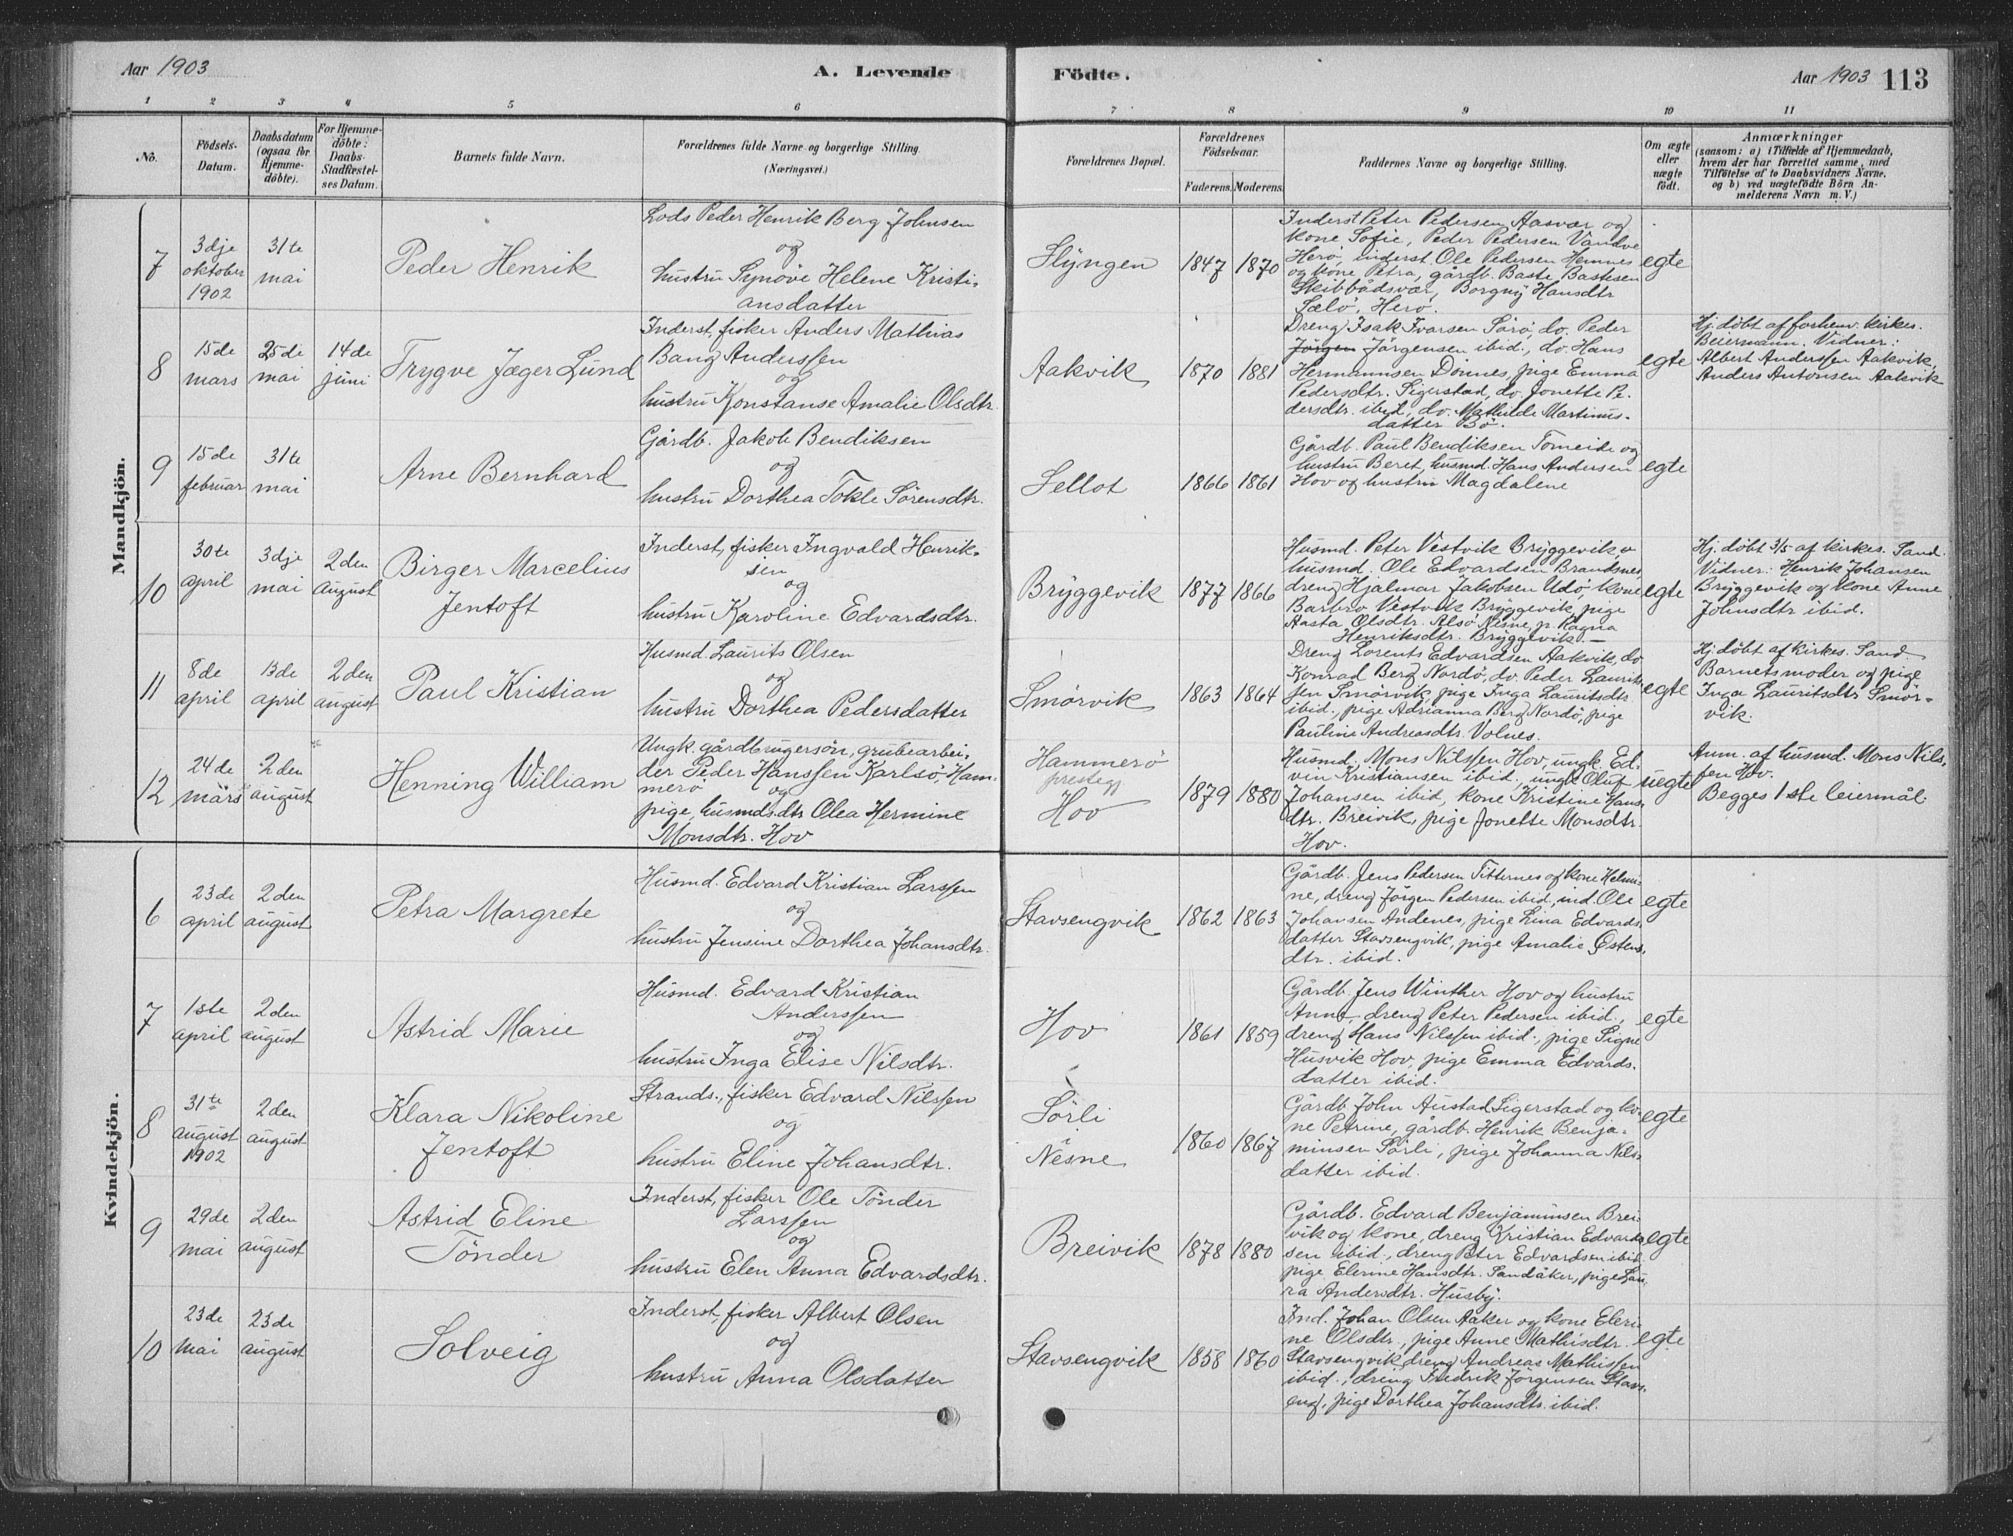 Aar 1903
A. Levende
Födte.
Aar 1903 113
1 2 3 4 5 6 7 8 9 10 11
No.
Födsels-
Datum.
Daabsdatum
(ogsaa for
Hjemme-
döbte).
For Hjemme-
döbte:
Daabs-
Stadfæstel-
ses Datum.
Barnets fulde Navn.
Forældrenes fulde Navne og borgerlige Stilling.
(Næringsvei.)
Forældrenes Bopæl.
Forældrenes
Födselsaar.
Faderens. Moderens.
Faddernes Navne og borgerlige Stilling.
Om ægte
eller
uægte
födt.
Anmærkninger
(saasom: a) i Tilfælde af Hjemmedaab,
hvem der har forrettet samme, med
Tilföielse af to Daabsvidners Navne.
og b) ved uægtefödte Börn An-
melderens Navn m. V.)
Mandkjön.
7
3dje
oktober
1902
31te
mai
Peder Henrik
Lods Peder Henrik Berg Johnsen
og
hustru Synöve Helene Kristi-
ansdatter
Slyngen
1847 1870
Inderst Peter Pedersen Aasvær og
kone Sofie, Peder Pedersen Vandve
Herö, inderst Ole Pedersen Hemnes
og kone Petra, gårdb. Baste Bastesen
Skibbådsvær, Borgny Hansdtr
Sælö, Herö.
egte
8
15de
mars
25de
mai
14de
juni
Trygve Jæger Lund
Inderst, fisker Anders Mathias
Bang Anderssen
og
hustru Konstanse Amalie Olsdtr.
Aakvik
1870 1881
Dreng Isak Ivarsen Sörö, do. Peder
Jörgen Jörgensen ibid., do. Hans
Hermannsen Dönnes, pige Emma
Pedersdtr. Sigerstad, do. Jonette Pe-
dersdtr. ibid, do. Mathilde Martinus-
datter Bö.
egte
Hj. döbt af forhenv. kirkes.
Beiermann. Vidner:
Albert Anderssen Aakvik,
Anders Antonsen Aakvik
9
15de
februar
31te
mai
Arne Bernhard
Gårdb. Jakob Bendiksen
og
hustru Dorthea Tokle Sörensdtr.
Sellot
1866 1861
Gårdb. Paul Bendiksen Tomeide og
hustru Beret, husmd. Hans Andersen
Hov og hustru Magdalene
egte
10
30te
april
3dje
mai
2den
august
Birger Marcelius
Jentoft
Inderst, fisker Ingvald Henrik-
sen
og
hustru Karoline Edvardsdtr.
Bryggevik
1877 1866
Husmd. Peter Vestvik Bryggevik,
husmd. Ole Edvardsen Brandsnes,
dreng Hjalmar Jakobsen Udö kone
Barbro Vestvik Bryggevik, pige
Aasta Olsdtr. Alsö Nesne, p. Ragna
Henriksdtr. Bryggevik.
egte
Hj. döbt 3/5 af kirkes. Sand.
Vidner: Henrik Johansen
Bryggevik og kone Anne
Johnsdtr ibid.
11
8de
april
13de
april
2den
august
Paul Kristian
Husmd. Laurits Olsen
og
hustru Dorthea Pedersdatter
Smörvik
1863 1864
Dreng Lorents Edvardsen Aakvik, do
Konrad Berg Nordö, do. Peder Laurit-
sen Smörvik, pige Inga Lauritsdtr
ibid., pige Adrianna Berg Nordö, pige
Pauline Andreasdtr. Volnes.
egte
Hj. döbt af kirkes. Sand
Barnets moder og pige
Inga Lauritsdtr Smör-
vik.
12
24de
mars
2den
august
Henning William
Ungk. gårdbrugersön, grubearbei-
der Peder Hanssen Karlsö, Ham-
merö og
pige, husmdsdtr Olea Hermine
Monsdtr. Hov
Hammerö
prestegj.
Hov
1879 1880
Husmd. Mons Nilssen Hov, ungk. Ed-
vin Kristiansen ibid., ungk. Oluf
Johansen ibid, kone Kristine Hans-
dtr. Breivik, pige Jonette Monsdtr.
Hov.
uegte
Anm. af husmd. Mons Nils-
sen Hov.
Begges 1ste leiermål.
Kvindekjön.
6
23de
april
2den
august
Petra Margrete
Husmd. Edvard Kristian Larssen
og
hustru Jensine Dorthea Johansdtr.
Stavsengvik
1862 1863
Gårdb. Jens Pedersen Titternes og kone Helmi-
ne, dreng Jörgen Pedersen ibid, ind. Ole
Johansen Andenes, pige Lina Edvards-
datter Stavsengvik, pige Amalie Östens-
dtr. ibid.
egte
7
1ste
april
2den
august
Astrid Marie
Husmd. Edvard Kristian
Anderssen
og
hustru Inga Elise Nilsdtr.
Hov
1861 1859
Gårdb. Jens Winther Hov og hustru
Anne, dreng Peter Pedersen ibid.,
dreng Hans Nilssen ibid., pige Signe
Husvik Hov, pige Emma Edvards-
datter ibid.
egte
8
31te
august
1902
2den
august
Klara Nikoline
Jentoft
Strands., fisker Edvard Nilssen
og
hustru Eline Johansdtr.
Sörli
Nesne
1860 1867
Gårdb. John Austad Sigerstad og ko-
ne Petrine, gårdb. Henrik Benja-
minsen Sörli, pige Johanna Nils-
datter ibid.
egte
9
29de
mai
2den
august
Astrid Eline
Tönder
Inderst, fisker Ole Tönder
Larssen
og
hustru Elen Anna Edvardsdtr.
Breivik
1878 1880
Gårdb. Edvard Benjaminsen Brei-
vik og kone, dreng Kristian Edvard-
sen ibid., dreng Peter Edvardsen ibid
pige Elerine Hansdtr. Sandåker, pige Lau-
ra Andersdtr. Husby.
egte
10
23de
mai
23de
august
Solveig
Inderst, fisker Albert Olsen
og
hustru Anna Olsdatter
Stavsengvik
1858 1860
Ind. Johan Olsen Aaker og kone Eleri-
ne Olsdtr., pige Anne Mathisdtr.
Stavsengvik, dreng Andreas Mathissen
ibid., dreng Fredrik Jörgensen Stavs-
eng, pige Dorthea Johansdtr. ibid.
egte